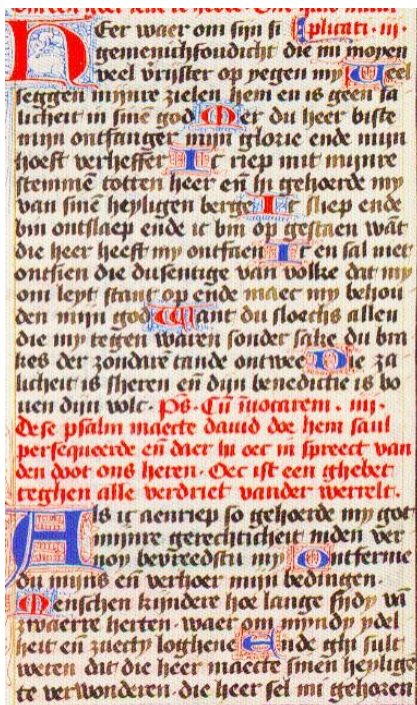 Heer waer om sijn si plicati · iij ·
gemenichfoudicht die mi moyen
veel vrijster op yegen my Veel
seggen mijnre zielen hem en is geen sa
licheit in sinē god Mer du heer biste
mijn ontfanger mijn glorie ende mijn
hoeft verheffer Ic riep mit mijnre
stemmē totten heer eñ hi gehoerde my
van sinē heyligen berge Ic sliep ende
bin ontslaep ende ic bin op gestaen wāt
die heer heeft my ontfaen Ic en sal niet
ontsien die dusentige van volke dat my
om leyt stant op ende maec my behou
den mijn god Want du sloechs allen
die my tegen waren sonder sake du bra
kes der zondarē tande ontwee Die za
licheit is sheren eñ dijn benedictie is bo
uen dijn volc · Ps · Cū īuocarem · iiij ·
Dese psalm maecte dauid doe hem saul
persequeerde eñ daer hi oec in spreect van
den doot ons heren · Oec ist een ghebet
teghen alle verdriet vander werrelt ·
Als ic aenriep so gehoerde my got
mijnre gerechticheit inden ver
non bevreedstu my Ontferme
du mijns eñ verhoer mijn bedingen ·
Menschen kijndere hoe lange sijdy vā
zwaerre herten · waer om mijndy ydel
heit eñ zuecty loghene Ende ghi sult
weten dat die heer maecte sinen heylige
te verwonderen · die heer sel mi gehoren